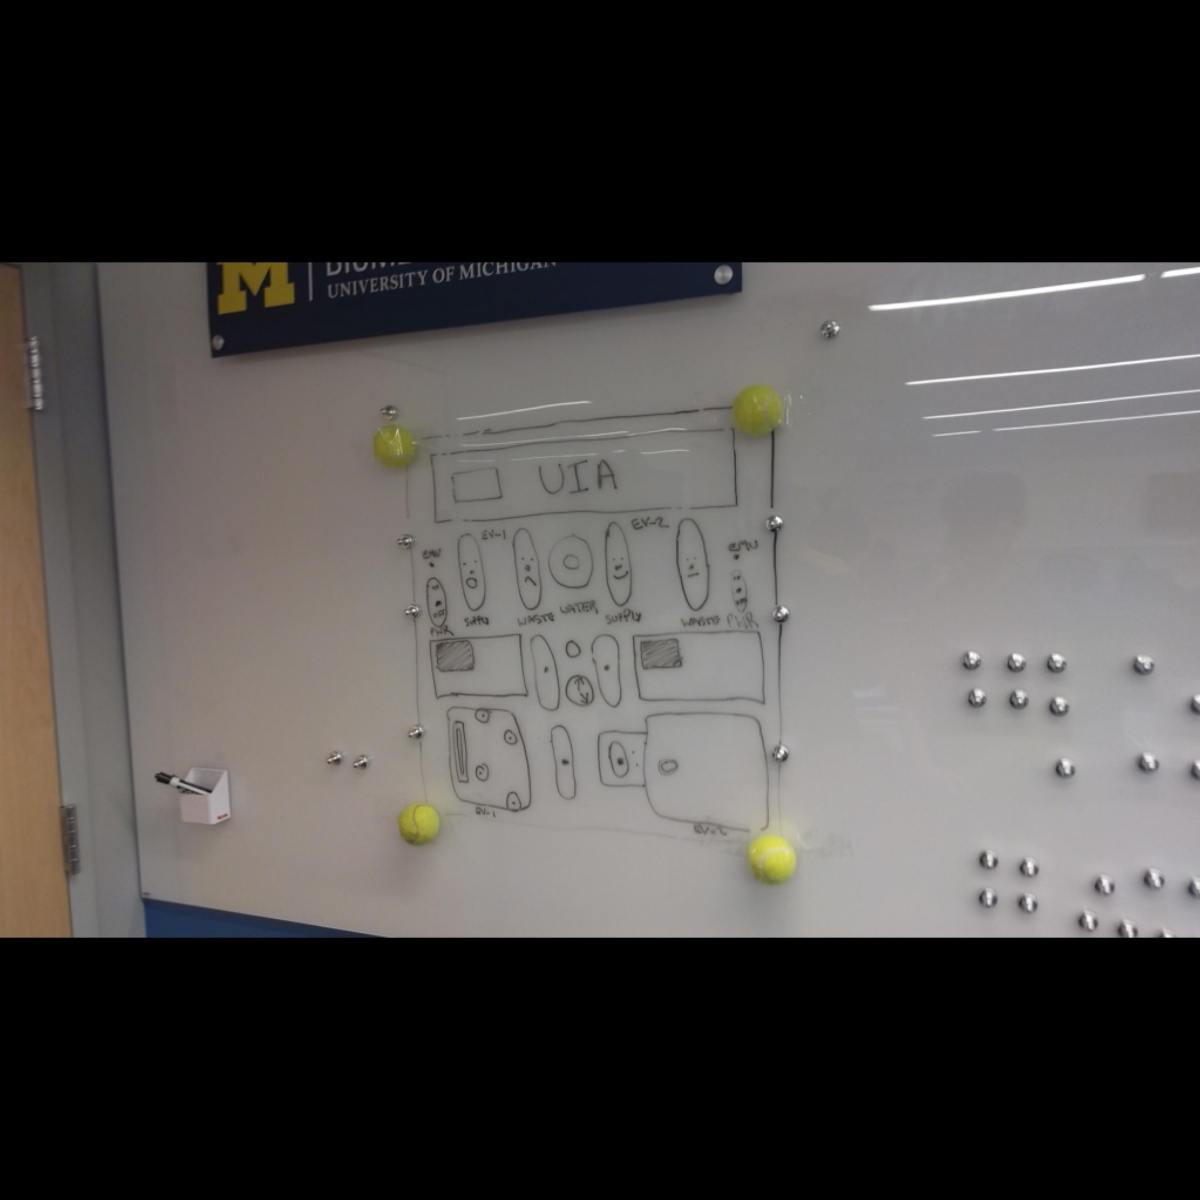 M
UNIVERSITY OF MICHIGAN
UIA
EV-1
EV-2
EMU
EMU
SUPPLY
WASTE
WATER
SUPPLY
WASTE
PWR
PWR
EV-1
EV-2